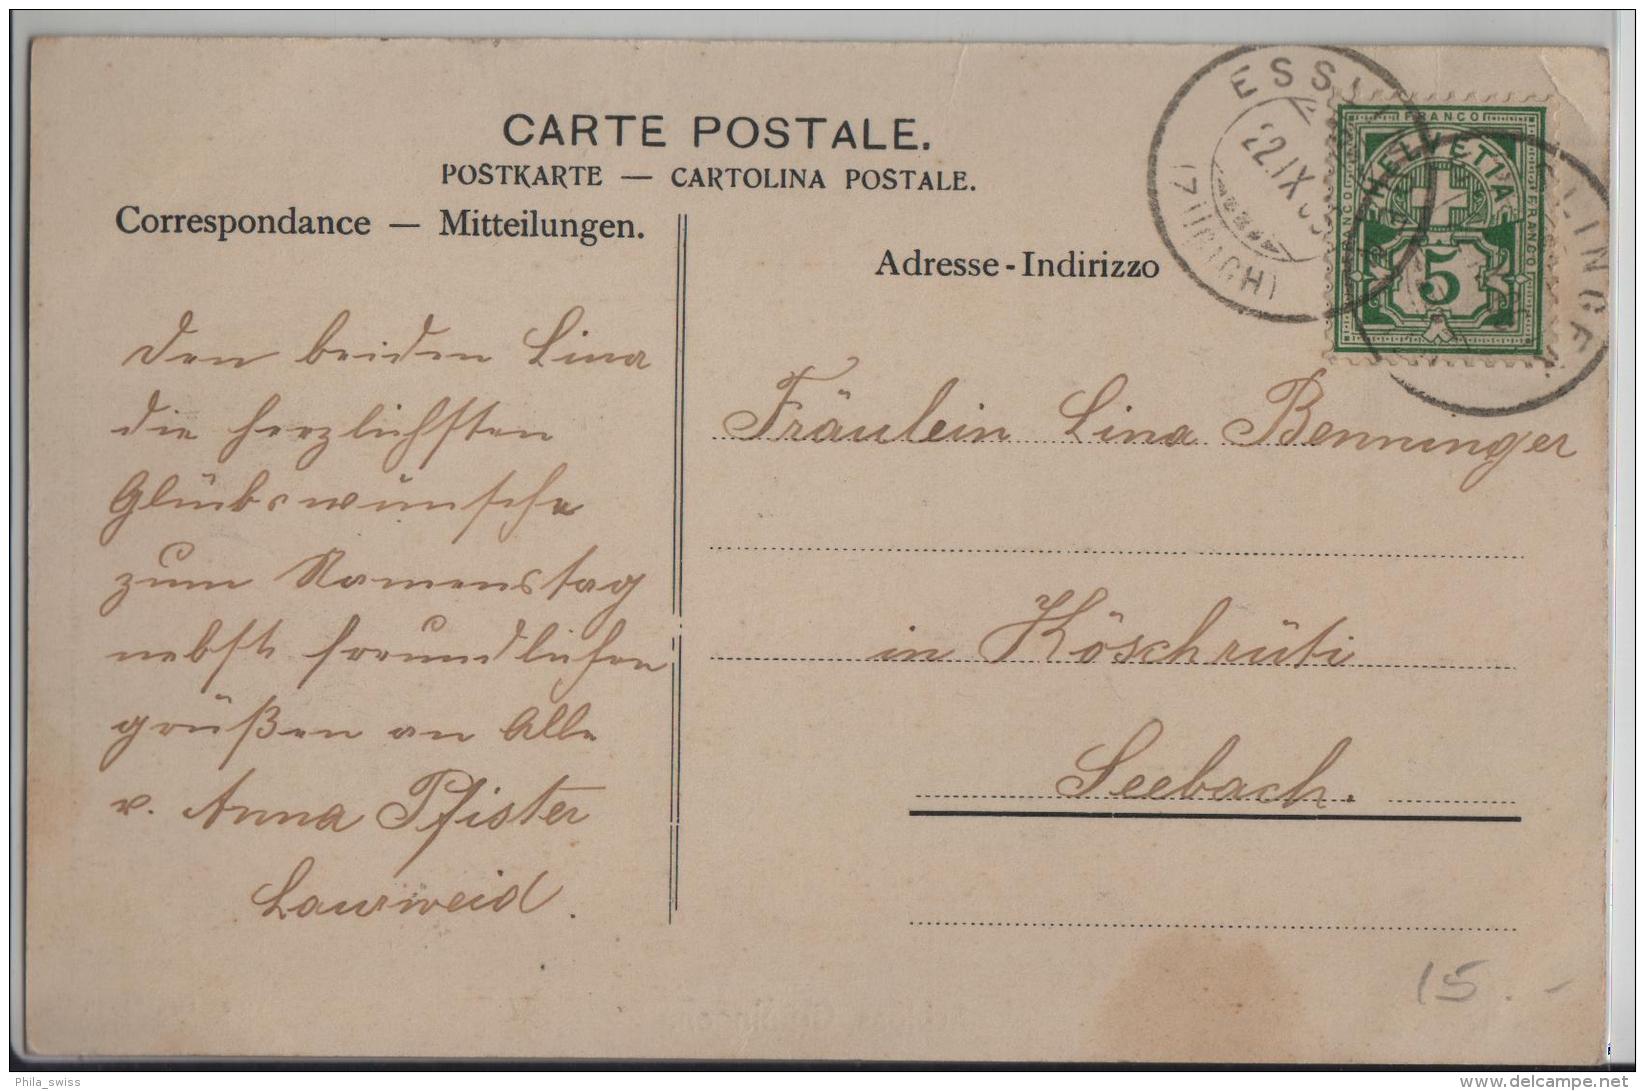 CARTE POSTALE.
POSTKARTE — CARTOLINA POSTALE.
Correspondance — Mitteilungen.
Adresse - Indirizzo
FRANCO
HELVETIA
FRANCO
FRANCO
5
22.IX
(ZÜRICH)
Den beiden Lina
die herzlichsten
Glückswünsche
zum Namenstag
nebst freundlichen
grüßen an Alle
v. Anna Pfister
Fräulein Lina Benninger
in Köschrüti
Seebach.
15.-
Phila_swiss
delcampe.net